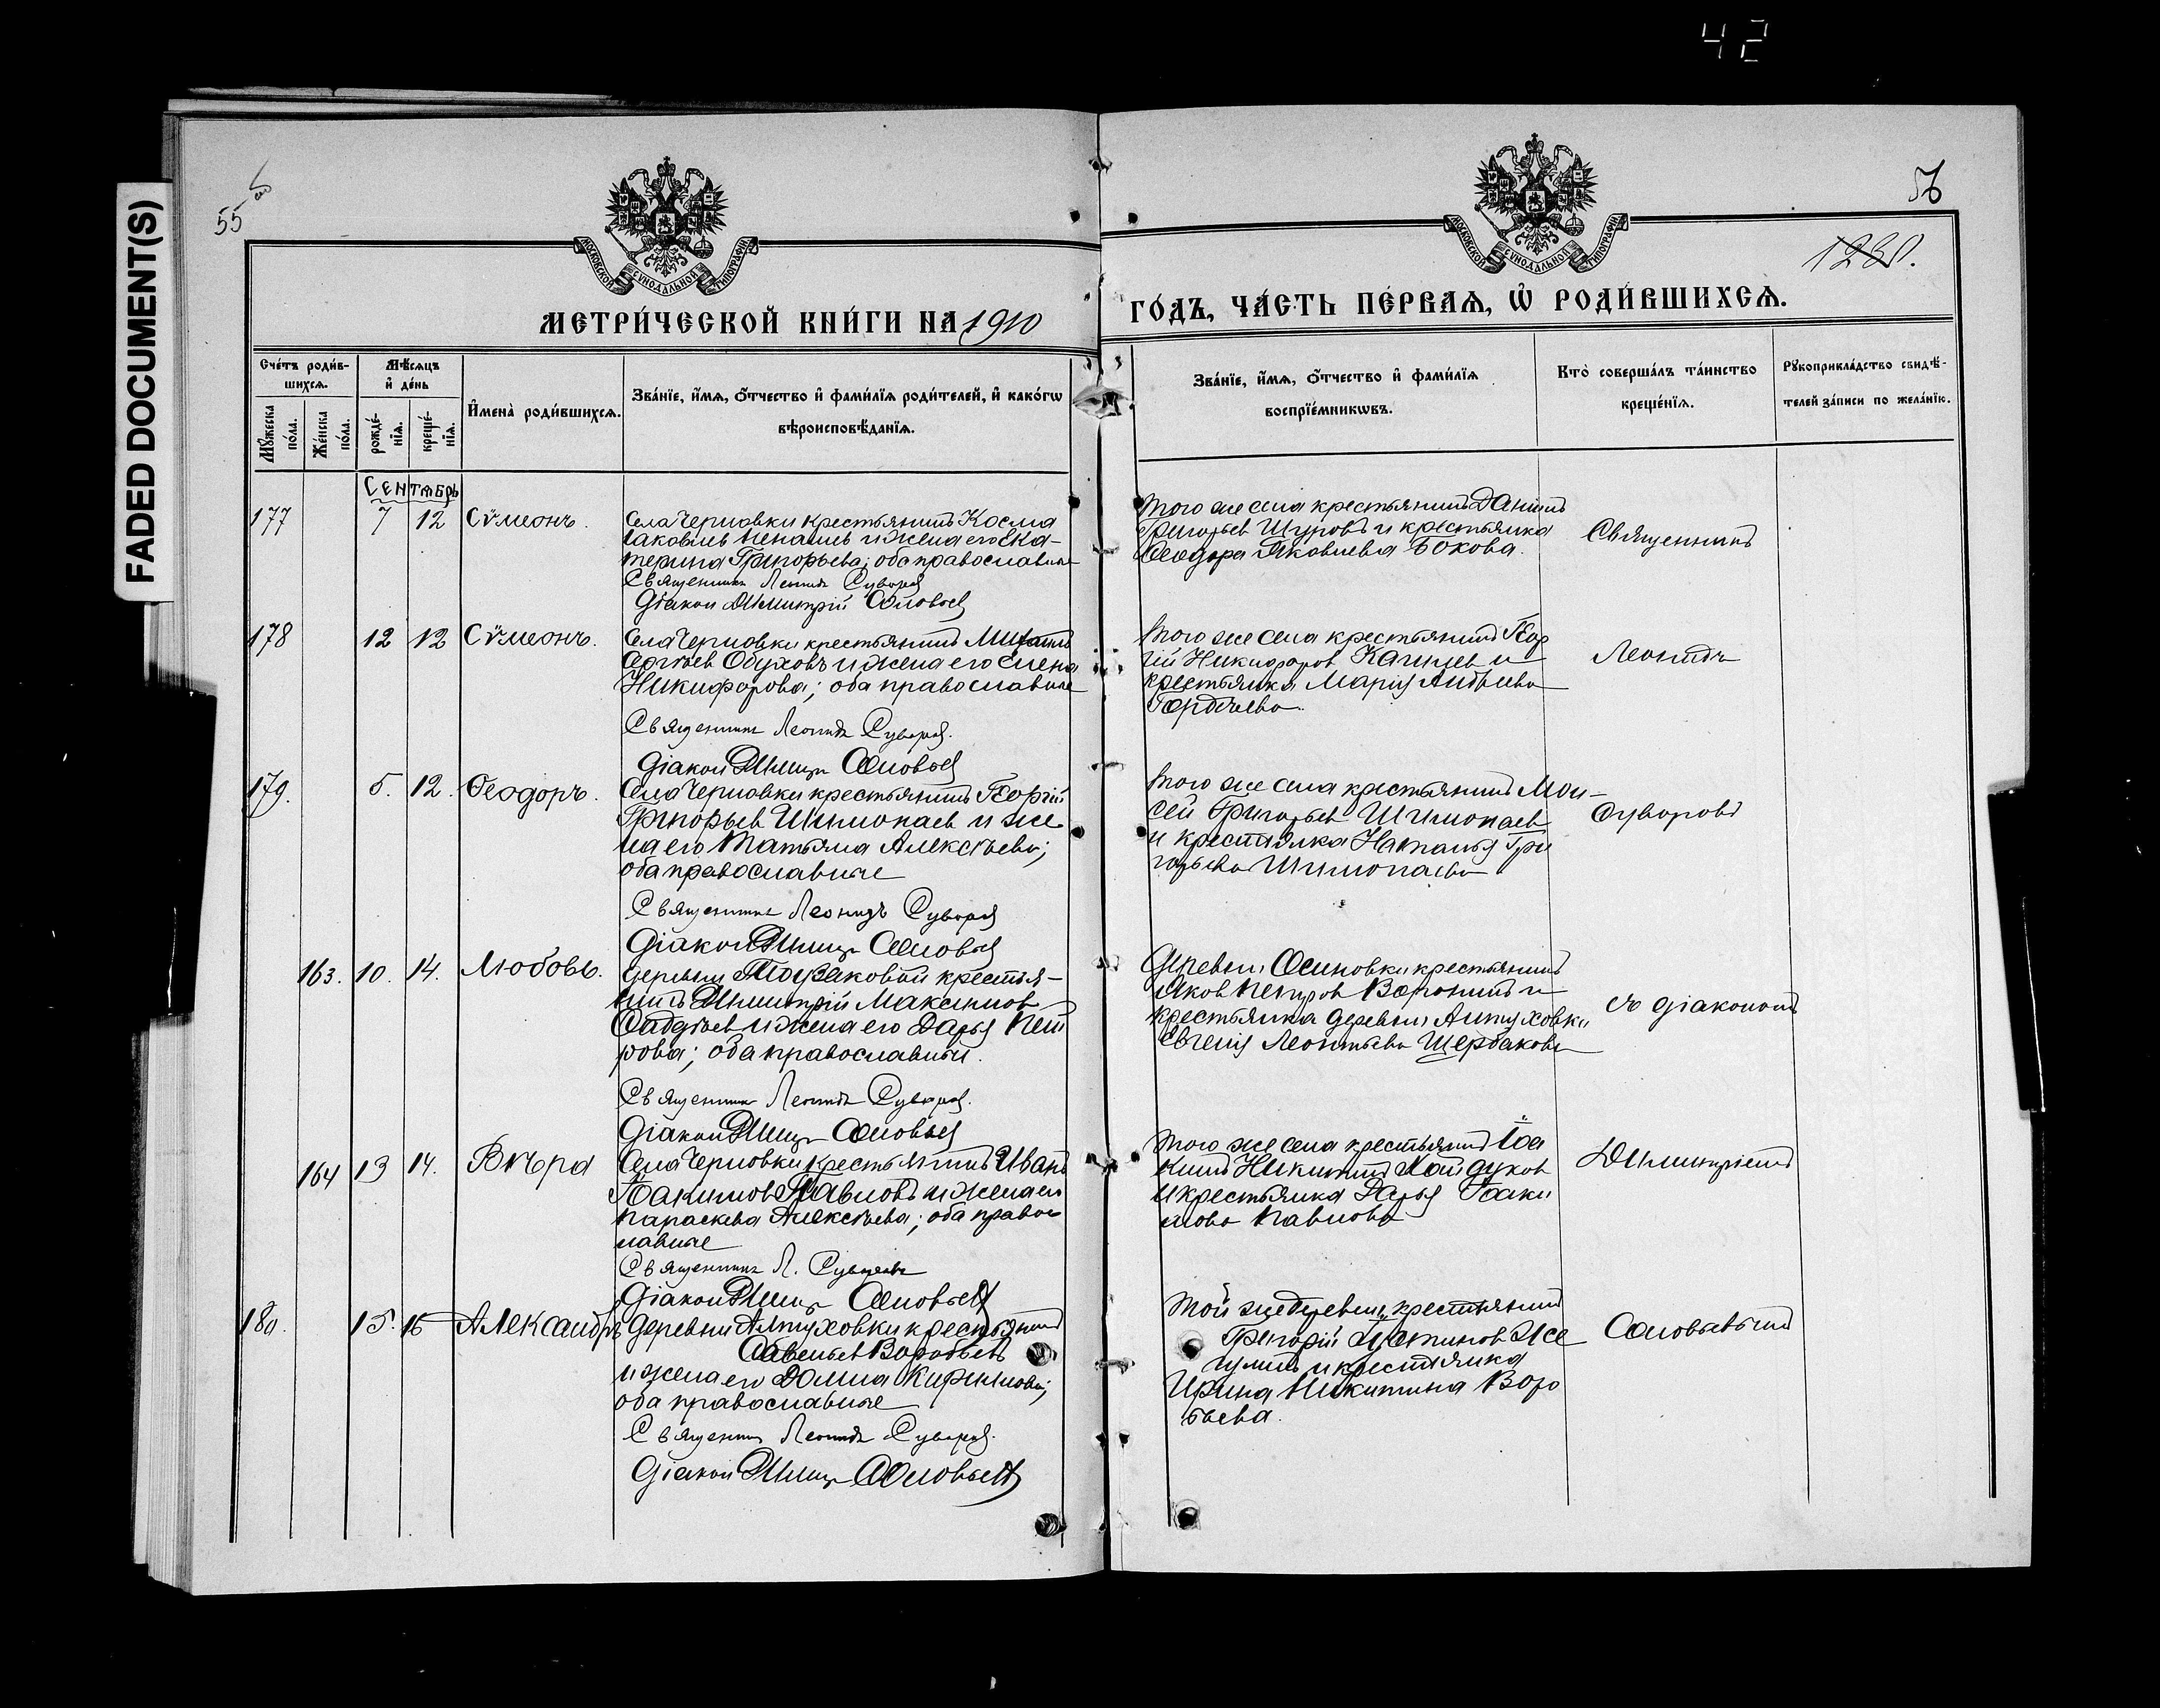 42
FADED DOCUMENT(S)
55 об
56
1280.
МОСКОВСКОЙ СѴНОДАЛЬНОЙ ТИПОГРАФІИ
МОСКОВСКОЙ СѴНОДАЛЬНОЙ ТИПОГРАФІИ
МЕТРИ́ЧЕСКОЙ КНИ́ГИ НА 1910
ГО́ДЪ, ЧА́СТЬ ПЕ́РВАѦ, Ѡ҆ РОДИ́ВШИХСѦ.
Сче́тъ роди́в-
шихсѧ.
Мꙋ́жеска по́ла.
Же́нска по́ла.
Мѣ́сѧцъ
и҆ де́нь
рожде́-
нїѧ.
креще́-
нїѧ.
И҆мена̀ роди́вшихсѧ.
Зва́нїе, и҆́мѧ, ѻ҆́тчество и҆ фами́лїѧ роди́телей, и҆ како́гѡ
вѣроисповѣ́данїѧ.
Зва́нїе, и҆́мѧ, ѻ҆́тчество и҆ фами́лїѧ
воспрїе́мникѡвъ.
Кто̀ соверша́лъ та́инство
креще́нїѧ.
Рꙋкоприкла́дство свидѣ́-
телей за́писи по жела́нїю.
Сентябрь
177 7 12 Сѵмеонъ.
Села Черновки крестьянинъ Косма
Іаковлевъ и жена его Ека-
терина Григорьева; оба православные
Священникъ Леонидъ Суворовъ
Діаконъ Димитрій Соловьевъ
Того же села крестьянинъ Даніилъ
Григорьев Шуровъ и крестьянка
Ѳеодора Яковлева Бокова.
Священникъ
178 12 12 Сѵмеонъ.
Села Черновки крестьянинъ Михаилъ
Сергѣев Обуховъ и жена его Елена
Никифорова; оба православные
Священникъ Леонидъ Суворовъ.
Діаконъ Димитр Соловьевъ
Того же села крестьянинъ Геор
гій Никифоров и
крестьянка Марія
Гордѣева.
Леонидъ
179. 5. 12. Ѳеодоръ.
Села Черновки крестьянинъ Георгій
Григорьев Шимонаев и же
на его Татьяна Алексѣева;
оба православные
Священникъ Леонидъ Суворовъ
Діаконъ Димитр Соловьевъ
Того же села крестьянинъ Мои-
сей Григорьев Шимонаев
и крестьянка Наталья Гри
горьева Шимонаева
Суворовъ
163. 10. 14. Любовь.
деревни крестья-
нинъ Димитрій Максимов
Авдѣев и жена его Дарья Пет
рова; оба православные.
Священникъ Леонидъ Суворовъ.
Діаконъ Димитр Соловьевъ
Деревни Осиновки крестьянинъ
Яков Петров Воронинъ и
крестьянка деревни Алтуховки
Евгенія Леонтьева Щербакова
съ діакономъ
164 13 14. Вѣра
Села Черновки крестьянинъ Иванъ
Іоакимов Павловъ и жена его
Параскева Алексѣева; оба правос
лавные
Священникъ Л. Суворовъ
Діаконъ Димитр Соловьевъ
Того же села крестьянинъ Іоа
кимъ Никитинъ Хайдуков
и крестьянка Дарья Іоаки
мова Павлова
Димитріемъ
180. 15. 15 Александръ
деревни Алтуховки крестьянинъ
Савельев Воробьевъ
и жена его Домна Кириллова;
оба православные
Священникъ Леонидъ Суворовъ.
Діаконъ Димитр Соловьевъ
Той же деревни крестьянинъ
Григорій Устинов Же
гулинъ и крестьянка
Ирина Никитина Воро
бьева.
Соловьевымъ